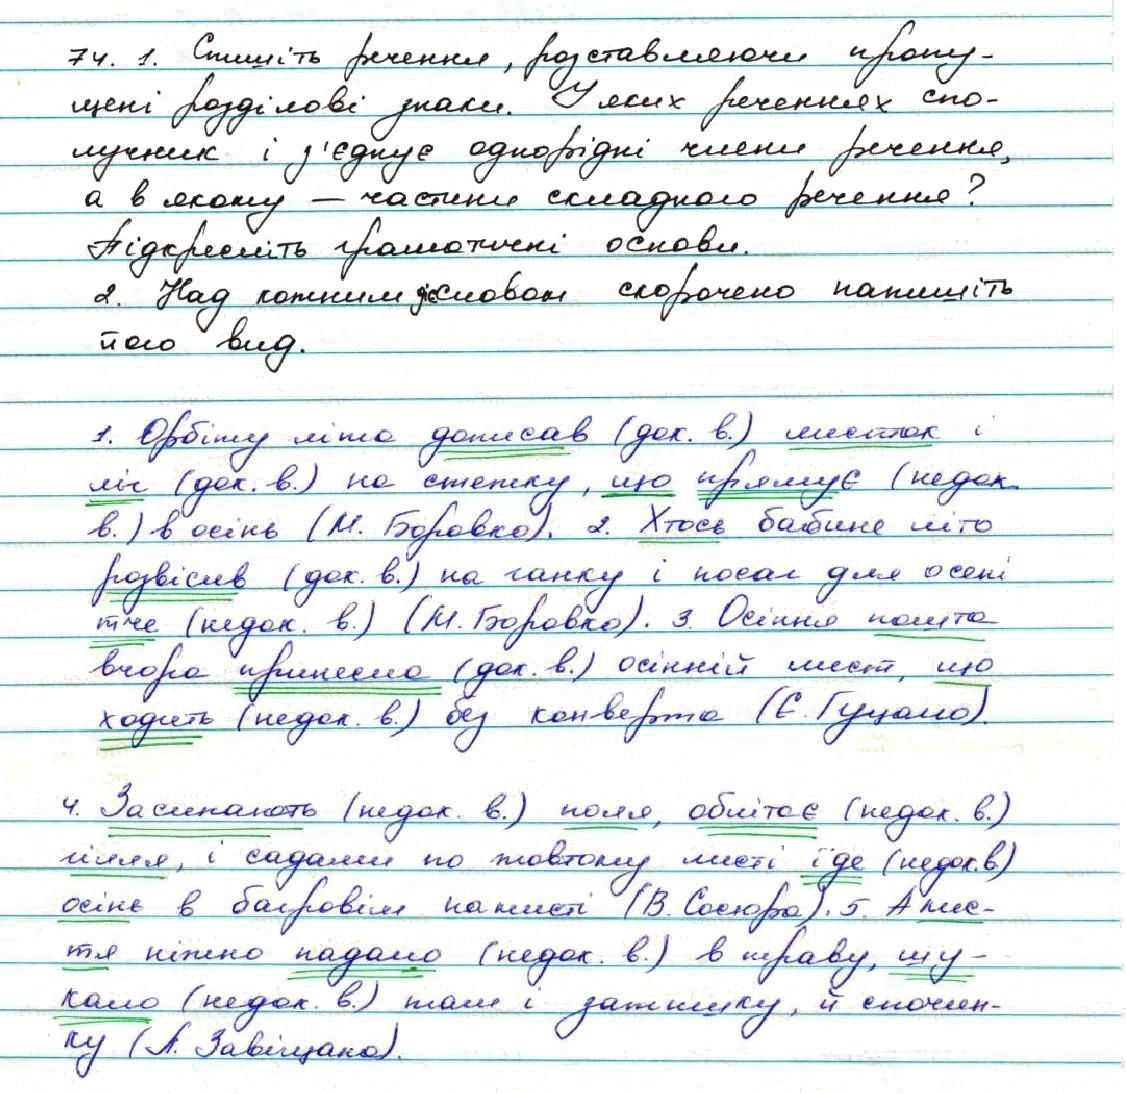 74. 1. Спишіть речення, розставляючи пропу-
щені розділові знаки. У яких реченнях спо-
лучник і з'єднує однорідні члени речення,
а в якому – частини складного речення?
Підкресліть граматичні основи.
2. Над кожним дієсловом скорочено напишіть
його вид.
1. Орбіту літа дописав (док. в.) листок і
ліг (док. в.) на стежку, що прямує (недок.
в.) в осінь (М. Боровко). 2. Хтось бабине літо
розвісив (док. в.) на ганку і посаг для осені
тче (недок. в.) (М. Боровко). 3. Осіння пошта
вчора принесла (док. в.) осінній лист, що
ходить (недок. в.) без конверта (Є. Гуцало).
4. Засипають (недок. в.) поля, облітає (недок. в.)
гілля, і садами по жовтому листі іде (недок.в)
осінь в багровім намисті (В. Сосюра). 5. А лис-
тя ніжно падало (недок. в.) в траву, шу-
кало (недок. в.) там і затишку, й спочин-
ку (А. Завгицано).